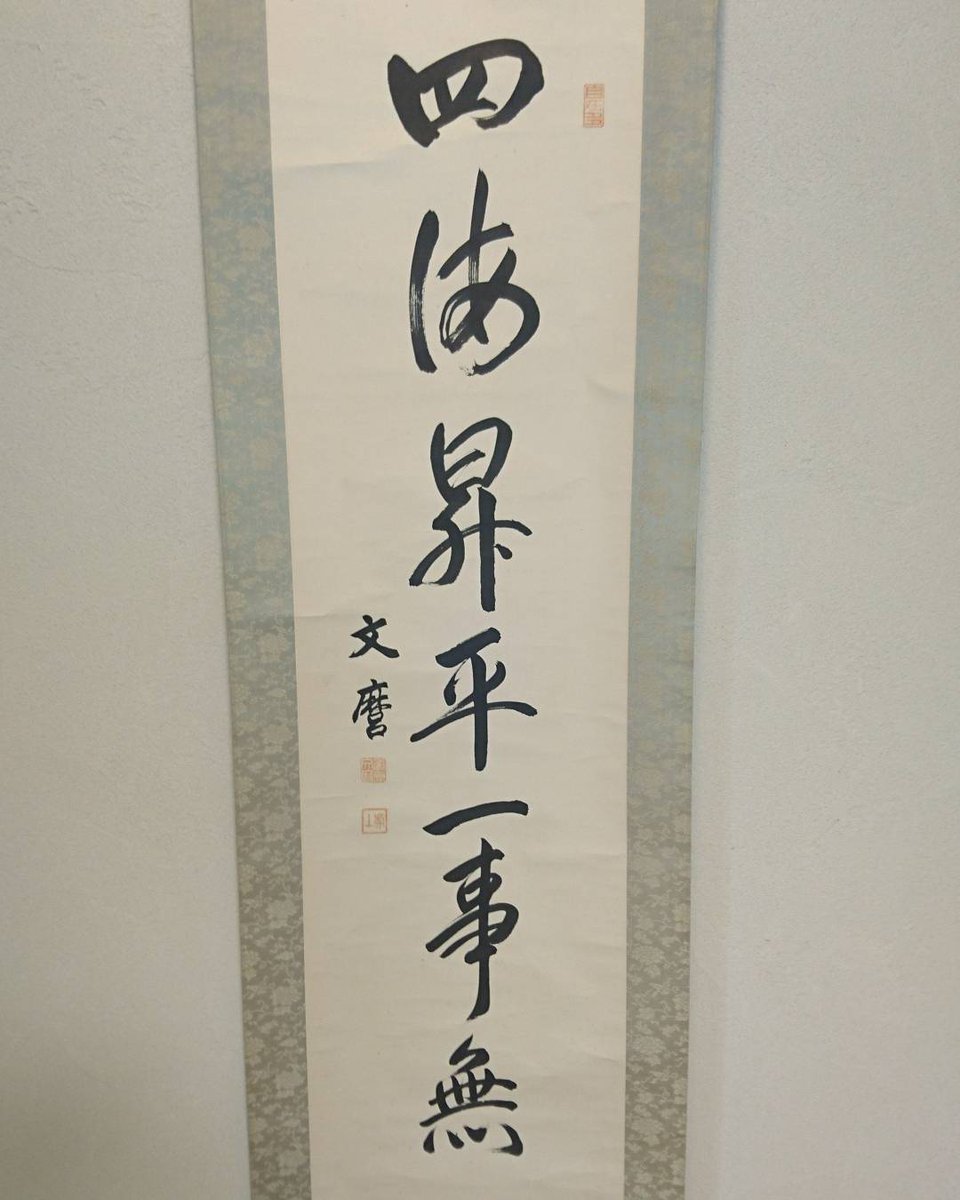 四海昇平一事無
文麿